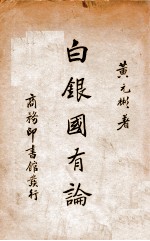 黃元彬著
白銀國有論
商務印書館發行